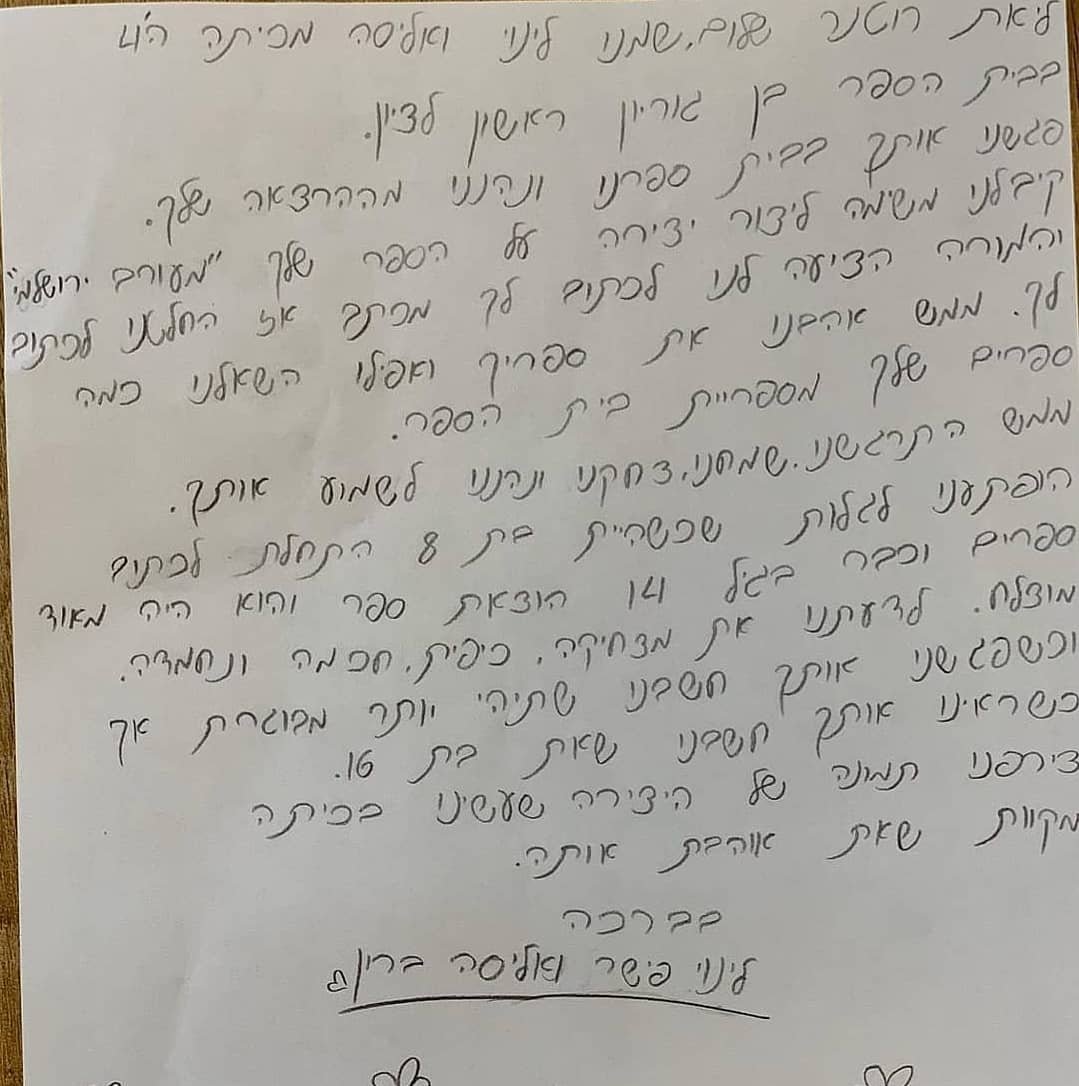 ליאת רוטנר שלום, שמנו לינוי ואליסה מכיתה ה'4
בבית הספר בן גוריון ראשון לציון.
פגשנו אותך בבית ספרנו ונהננו מההרצאה שלך.
קיבלנו משימה ליצור יצירה על הספר שלך "מעורב ירושלמי"
והמורה הציעה לנו לכתוב לך מכתב אז החלטנו לכתוב
לך. ממש אהבנו את ספריך ואפילו השאלנו כמה
ספרים שלך מספריית בית הספר.
ממש התרגשנו, שמחנו, צחקנו ונהננו לשמוע אותך.
הופתענו לגלות שכשהיית בת 8 התחלת לכתוב
ספרים וכבר בגיל 14 הוצאת ספר והוא היה מאוד
מוצלח. לדעתנו את מצחיקה, כיפית, חכמה ונחמדה.
וכשפגשנו אותך חשבנו שתיהי יותר מבוגרת אך
כשראינו אותך חשבנו שאת בת 16.
צירפנו תמונה של היצירה שעשינו בכיתה
מקוות שאת אוהבת אותה.
בברכה
לינוי פישר ואליסה ברין